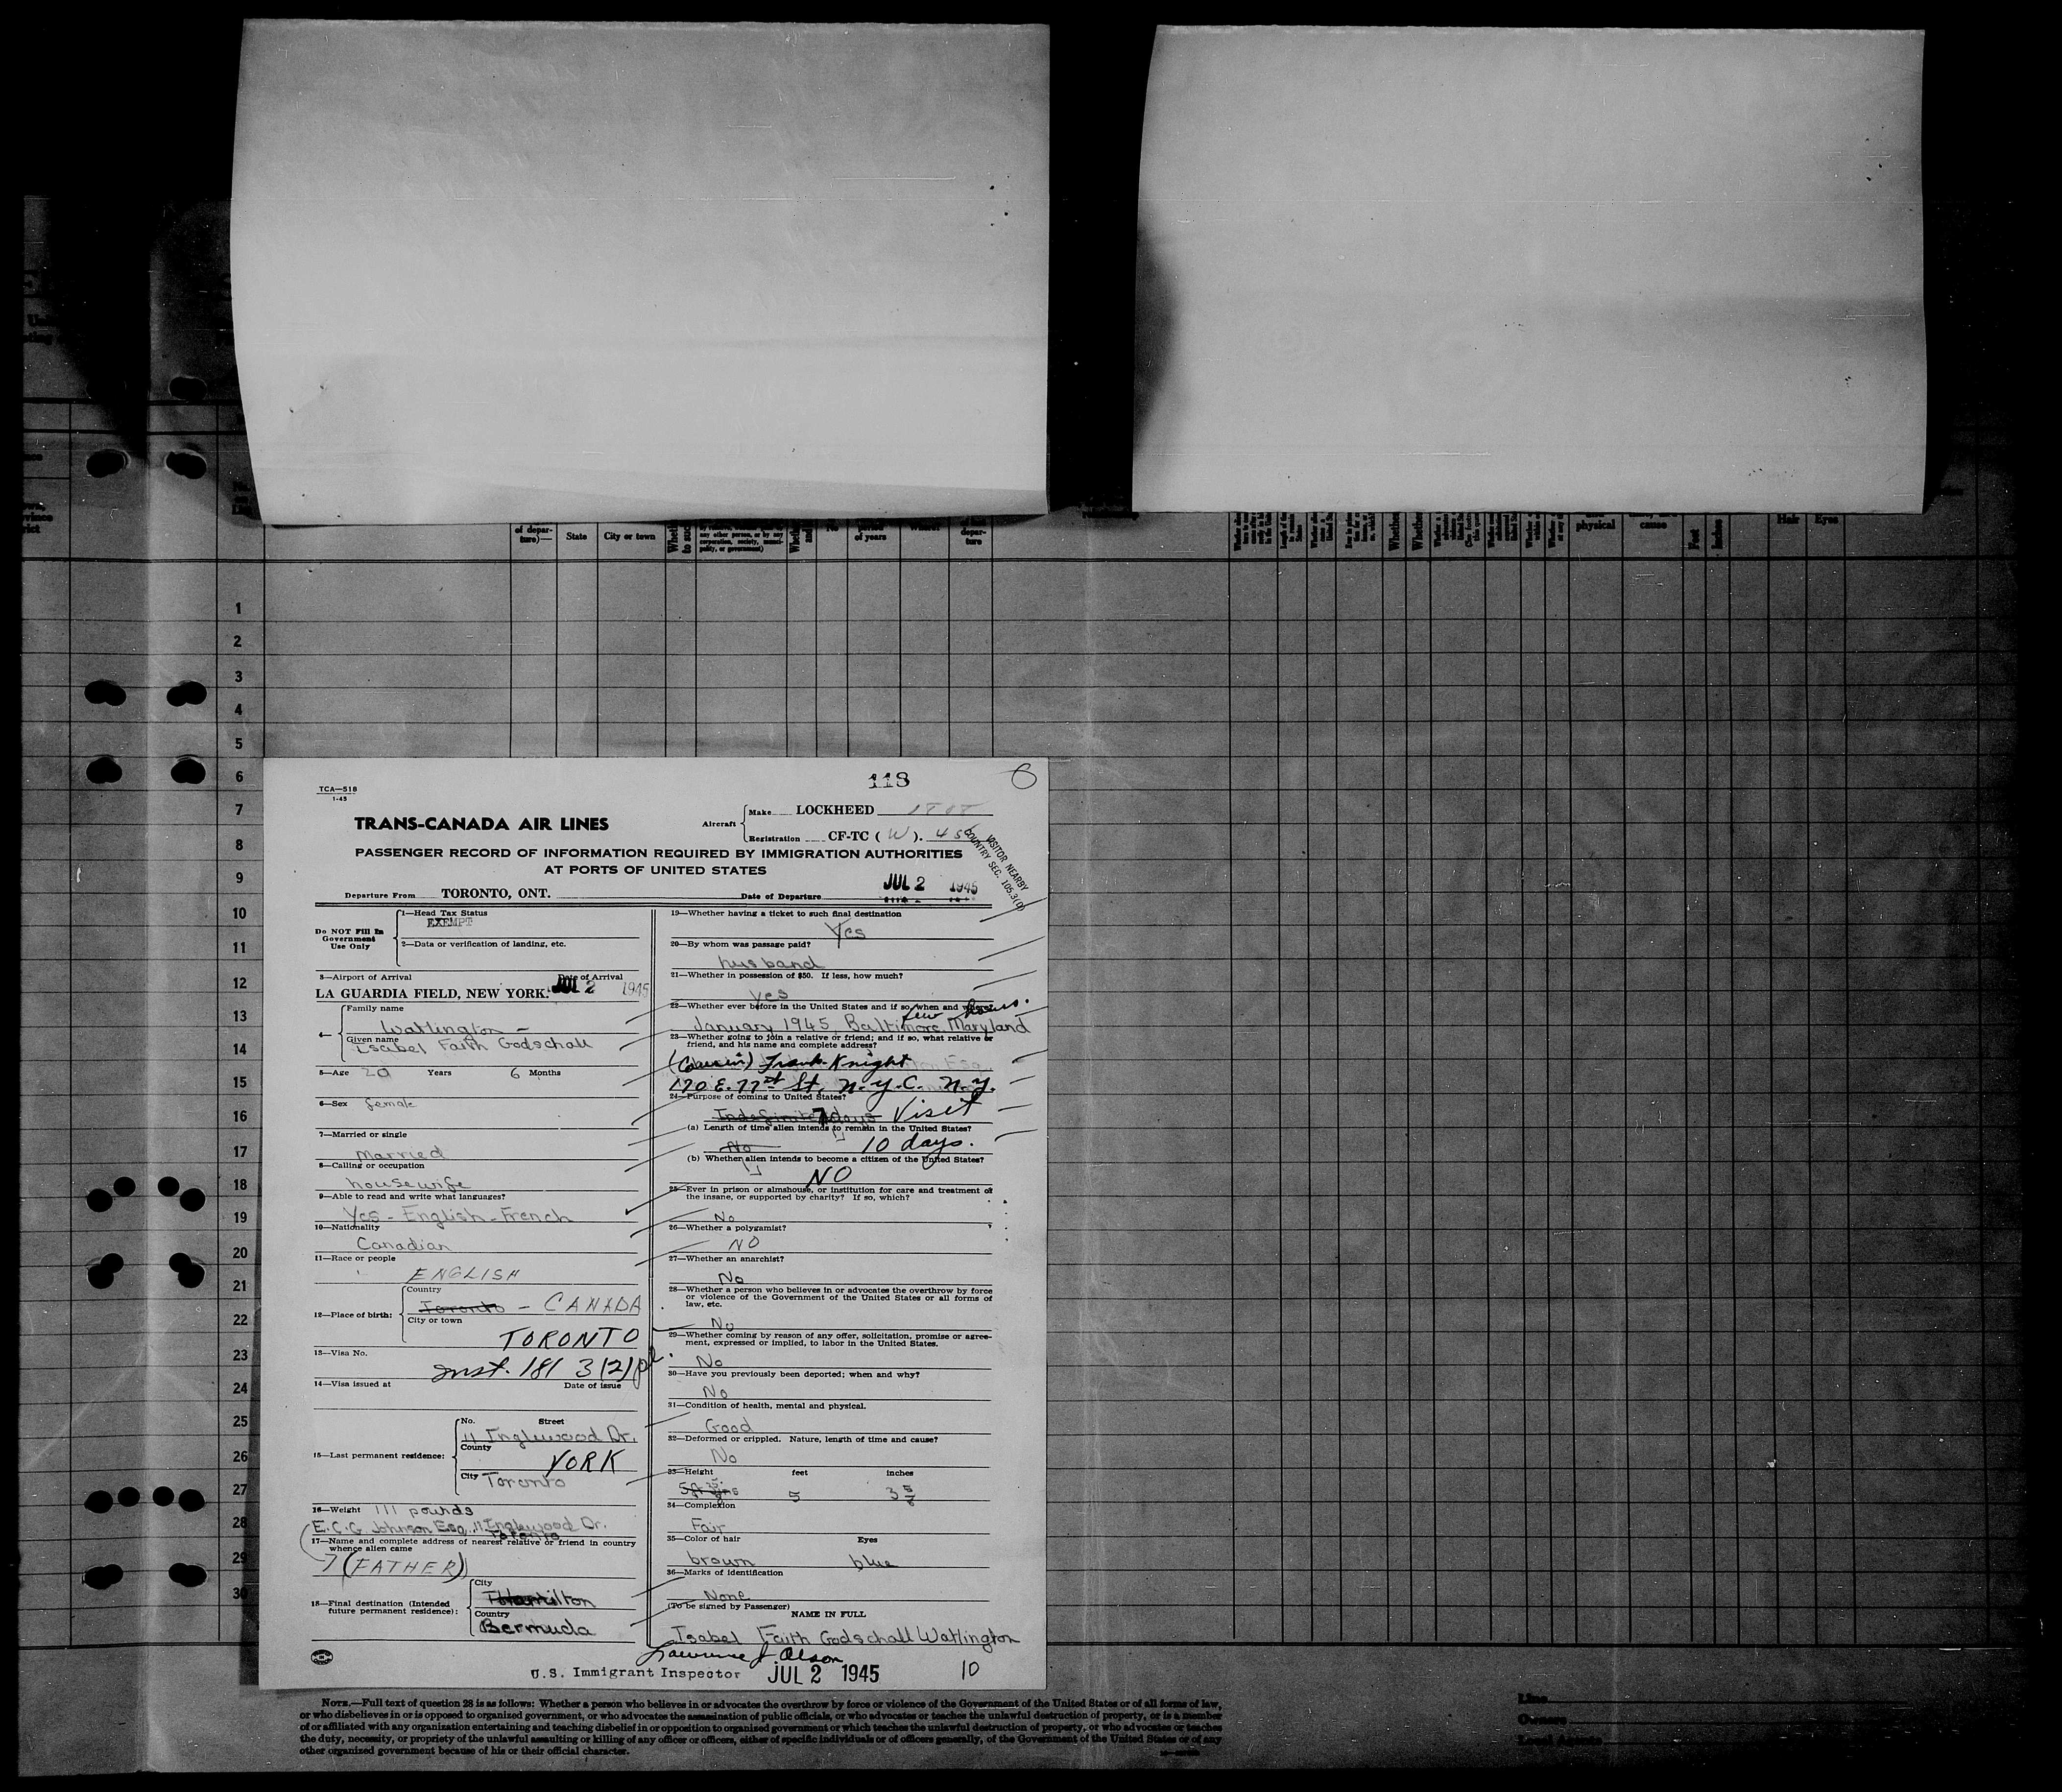 of depar-
ture)—
State
City or town
any other person, or by any
corporation, society, munici-
pality, or government)
No
of years
depar-
ture
physical
cause
Feet
Inches
Hair
Eyes
1
2
3
4
5
6
7
8
9
10
11
12
13
14
15
16
17
18
19
20
21
22
23
24
25
26
27
28
29
30
TCA—518
1-45
118
6
TRANS-CANADA AIR LINES
Aircraft
Make LOCKHEED
Registration CF-TC (W).
VISITOR NEARBY
COUNTRY SEC. 105.3(D)
PASSENGER RECORD OF INFORMATION REQUIRED BY IMMIGRATION AUTHORITIES
AT PORTS OF UNITED STATES
Departure From TORONTO, ONT.
Date of Departure JUL 2 1945
Do NOT Fill In
Government
Use Only
1—Head Tax Status
EXEMPT
2—Data or verification of landing, etc.
3—Airport of Arrival
Date of Arrival
LA GUARDIA FIELD, NEW YORK. JUL 2 1945
4—
Family name
Watlington –
Given name
Isabel Faith Godschall
5—Age 20 Years 6 Months
6—Sex female
7—Married or single
married
8—Calling or occupation
housewife
9—Able to read and write what languages?
Yes - English - French
10—Nationality
Canadian
11—Race or people
ENGLISH
12—Place of birth:
Country
Toronto – CANADA
City or town
TORONTO
13—Visa No.
Inst. 181 3(2)
14—Visa issued at
Date of issue
15—Last permanent residence:
No. Street
11 Inglewood Dr.
County
YORK
City Toronto
16—Weight 111 pounds
E.C.G. Johnson Esq., 11 Inglewood Dr.
Toronto
17—Name and complete address of nearest relative or friend in country
whence alien came
(FATHER)
18—Final destination (Intended
future permanent residence):
City
Hamilton
Country
Bermuda
19—Whether having a ticket to such final destination
Yes
20—By whom was passage paid?
husband
21—Whether in possession of $50. If less, how much?
yes
22—Whether ever before in the United States and if so, when and where?
few hours.
January 1945, Baltimore, Maryland
23—Whether going to join a relative or friend; and if so, what relative or
friend, and his name and complete address?
(Cousin) Frank Knight
170 E. 77st St, N.Y.C. N.Y.
24—Purpose of coming to United States?
Indefinite 7 days Visit
(a) Length of time alien intends to remain in the United States?
No 10 days.
(b) Whether alien intends to become a citizen of the United States?
NO
25—Ever in prison or almshouse, or institution for care and treatment of
the insane, or supported by charity? If so, which?
No
26—Whether a polygamist?
NO
27—Whether an anarchist?
No
28—Whether a person who believes in or advocates the overthrow by force
or violence of the Government of the United States or all forms of
law, etc.
No
29—Whether coming by reason of any offer, solicitation, promise or agree-
ment, expressed or implied, to labor in the United States.
No
30—Have you previously been deported; when and why?
No
31—Condition of health, mental and physical.
Good
32—Deformed or crippled. Nature, length of time and cause?
No
33—Height feet inches
5 3 5/8
34—Complexion
Fair
35—Color of hair Eyes
brown blue
36—Marks of identification
None
(To be signed by Passenger)
NAME IN FULL
Isabel Faith Godschall Watlington
Lawrence J. Olson
U.S. Immigrant Inspector JUL 2 1945
10
NOTE.—Full text of question 28 is as follows: Whether a person who believes in or advocates the overthrow by force or violence of the Government of the United States or of all forms of law,
or who disbelieves in or is opposed to organized government, or who advocates the assassination of public officials, or who advocates or teaches the unlawful destruction of property, or is a member
of or affiliated with any organization entertaining and teaching disbelief in or opposition to organized government or which teaches the unlawful destruction of property, or who advocates or teaches
the duty, necessity, or propriety of the unlawful assaulting or killing of any officer or officers, either of specific individuals or of officers generally, of the Government of the United States or of any
other organized government because of his or their official character.
Line
Owners
Local Agents